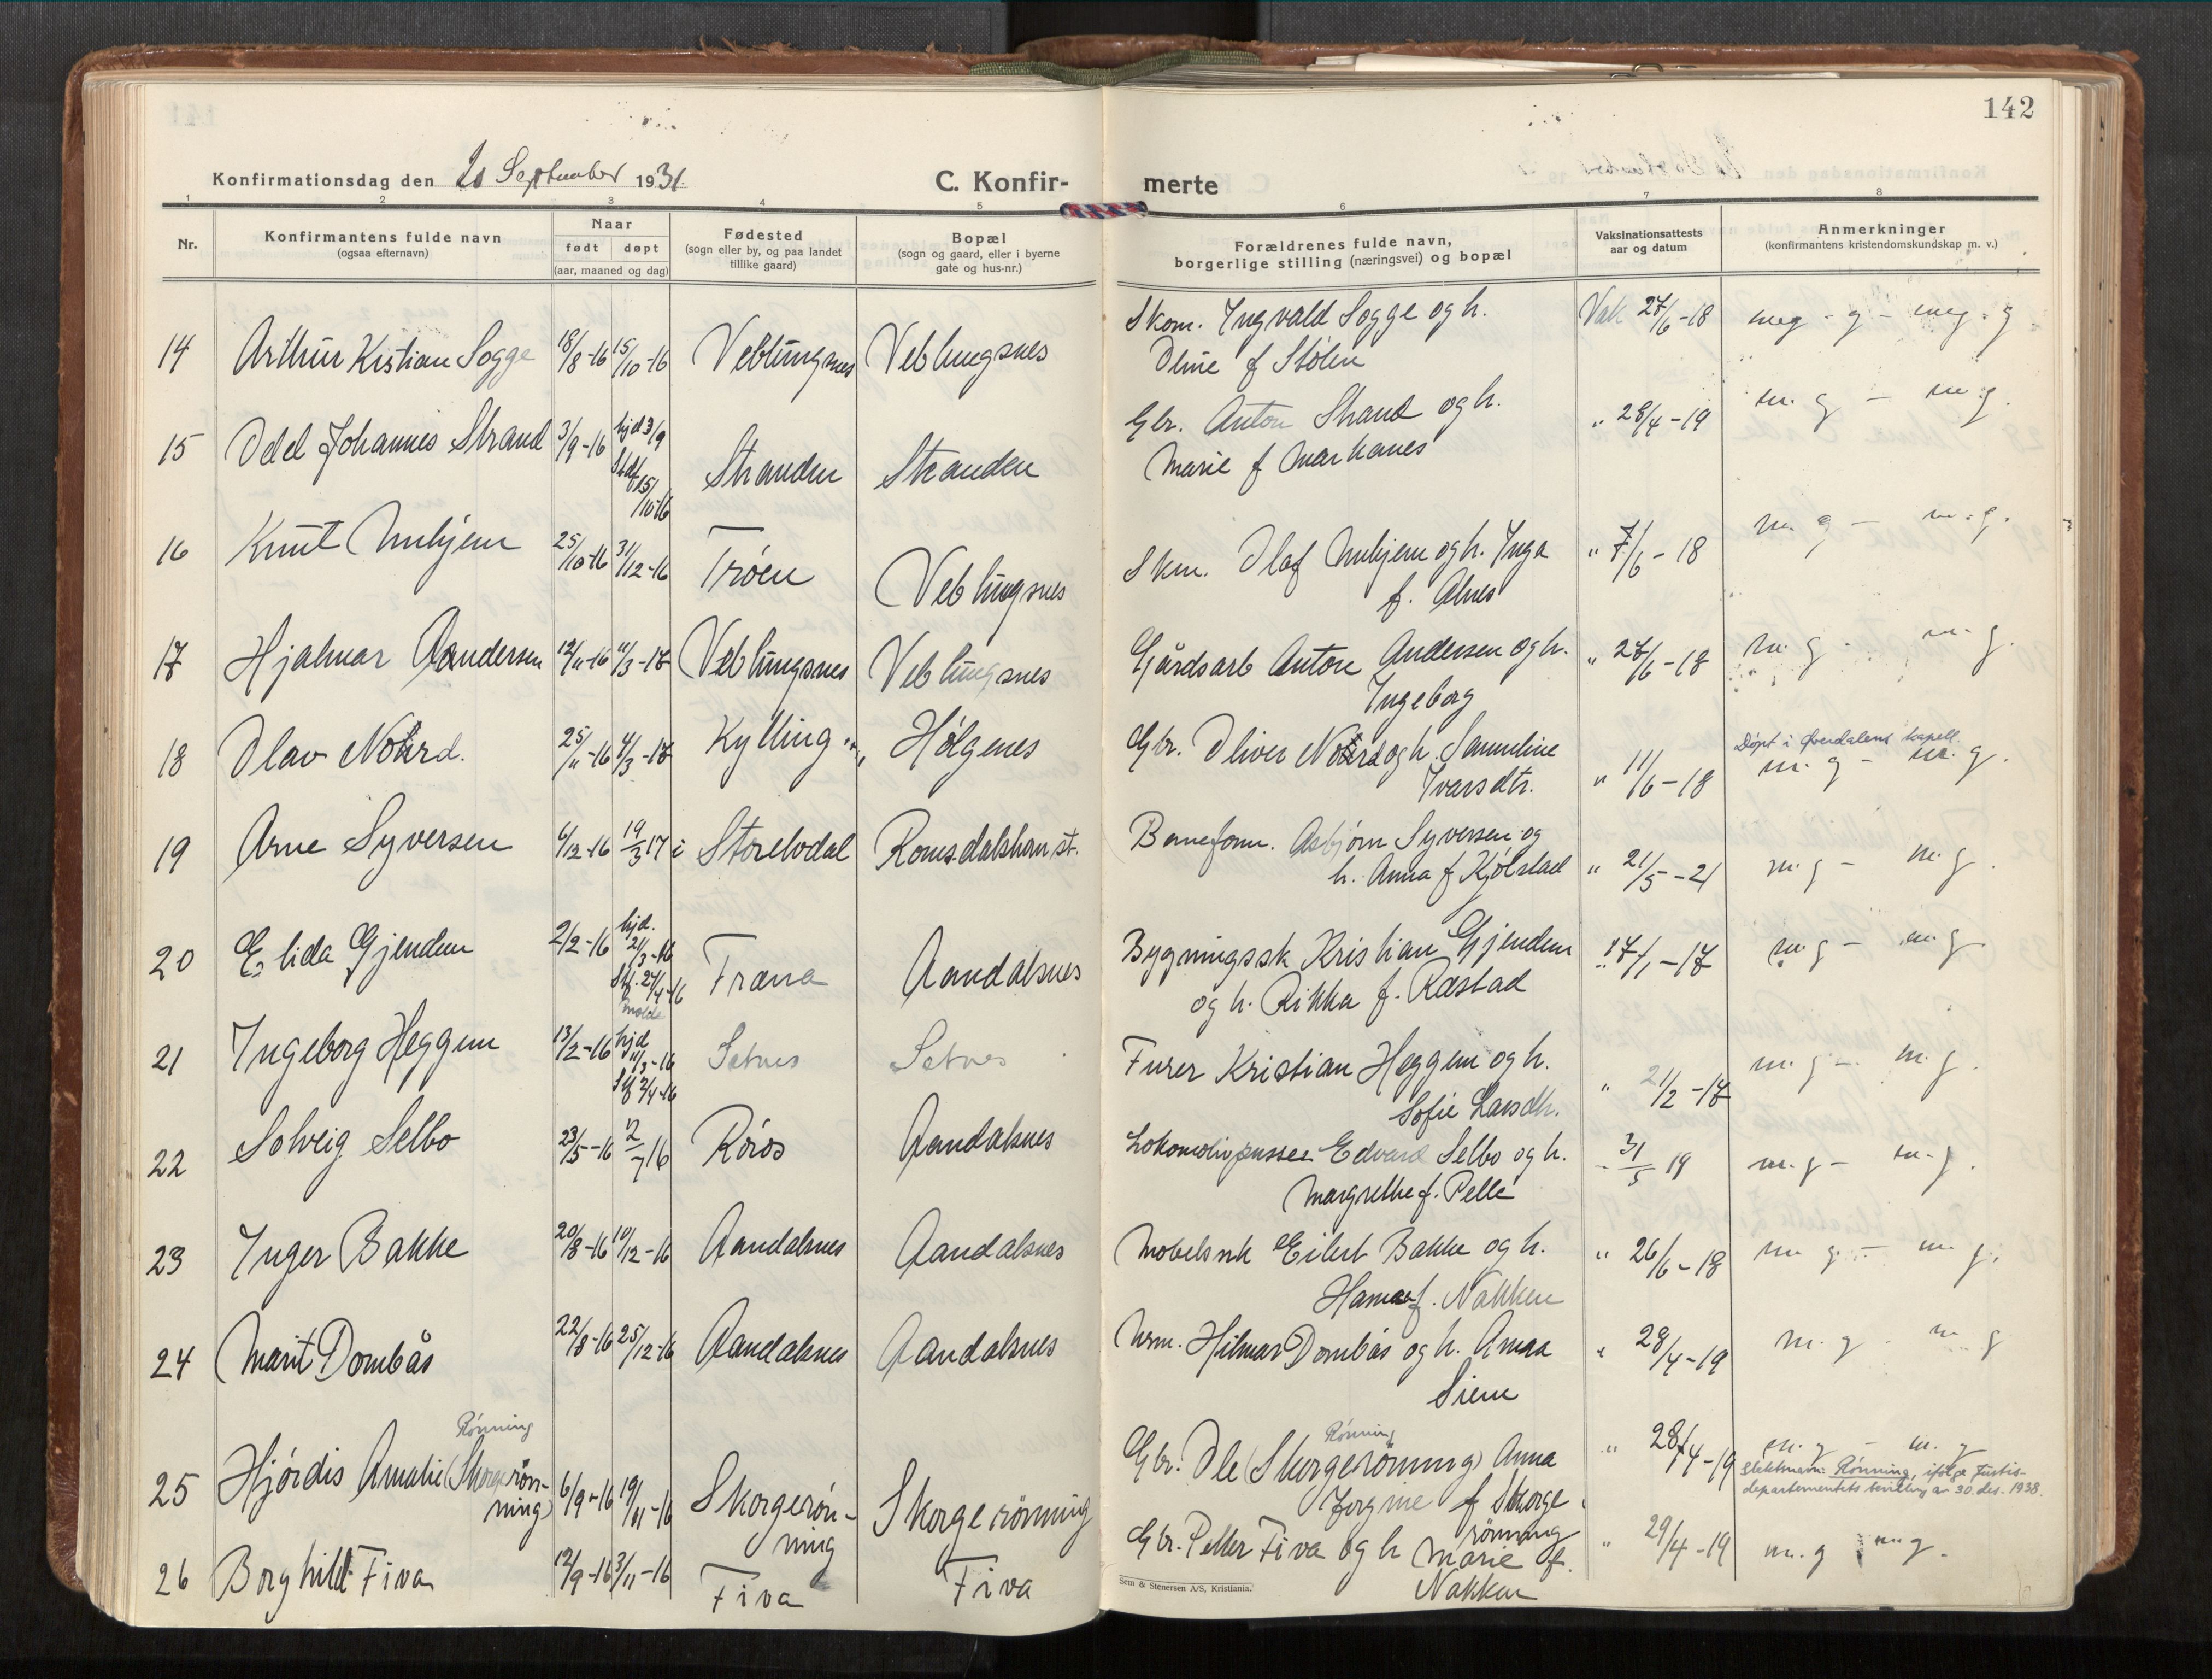 142
Konfirmationsdag den 20 September 1931.
C. Konfir-
merte
1 2 3 4 5 6 7 8
Nr.
Konfirmantens fulde navn
(ogsaa efternavn)
Naar
født døpt
(aar, maaned og dag)
Fødested
(sogn eller by, og paa landet
tillike gaard)
Bopæl
(sogn og gaard, eller i byerne
gate og hus-nr.)
Forældrenes fulde navn,
borgerlige stilling (næringsvei) og bopæl
Vaksinationsattests
aar og datum
Anmerkninger
(konfirmantens kristendomskundskap m. v.)
14 Arthur Kistian Sogge 18/8-16 15/10-16 Veblungsnes Veblungsnes
Skom. Ingvald Sogge og h. Vak 27/6-18 meg. g - meg. g
Oline f Stølen
15 Odel Johannes Strand 3/9-16 hjd 3/9
Stdf 15/10-16 Stranden Stranden
Gbr. Anton Strand og h. " 28/4-19 m. g - m. g.
Marie f Markanes
16 Knut Unhjem 25/10-16 31/12-16 Trøen Veblungsnes
Skm. Olaf Unhjem og h. Inga " 7/6-18 m. g - m. g.
f. Alnes
17 Hjalmar Aandersen 12/11-16 11/3-17 Veblungsnes Veblungsnes
Gårdsarb Anton Andersen og h. " 27/6-18 m. g - m. g.
Ingeborg
18 Olav Nord. 25/11-16 4/3-17 Kylling Hølgenes
Gbr. Oliver Nord og h. Samuline " 11/6-18 Døpt i Øverdalens kapell.
Ivarsdtr. m. g - m. g.
19 Arne Syversen 6/12-16 19/3 17 i Storelvdal Romsdalshorn st.
Baneform. Asbjørn Syversen og
h. Anna f Kjølstad " 21/5-21 m. g - m. g.
20 Elida Gjendem 2/2-16 hjd.
21/3-16
Stf. 24/4-16
Molde Fræna Aandalsnes
Bygningssk Kristian Gjendem " 17/1-17 m. g - m. g
og h. Rikka f. Ræstad
21 Ingeborg Heggem 13/2-16 hjd
11/3-16
Stf 2/4-16 Setnes Setnes
Furer Kristian Heggem og h. " 21/2-17 m. g - m. g.
Sofie Larsdtr.
22 Solveig Selbo 23/5-16 2/7 16 Røros Aandalsnes
Lokomotivpusser Edvard Selbo og h. - 31/5 19 m. g - m. g.
Margrethe f. Pelle
23 Inger Bakke 20/8-16 10/12-16 Aandalsnes Aandalsnes
Møbelsnk Eilert Bakke og h. " 26/6-18 m. g - m. g.
Hanna f. Nakken
24 Marit Dombås 22/8-16 25/12-16 Aandalsnes Aandalsnes
Hilmar Dombås og h. Anna " 28/4-19 m. g - m g
Siem
Rønning
25 Hjørdis Amalie (Skorgerøn-
ning) 6/9-16 19/11-16 Skorgerøn-
ning Skorgerønning
Rønning
Gbr. Ole (Skorgerønning) Anna " 28/4-19 m. g - m. g
Jorgine f Skorge
rønning
Slektsnavn: Rønning, ifølge Justis-
departementets bevilling av 30. des. 1938.
26 Borghild Fiva 12/9-16 3/11-16 Fiva Fiva
Gbr. Petter Fiva og h Marie f. " 29/4-19 m. g m g.
Nakken
Sem & Stenersen A/S, Kristiania.